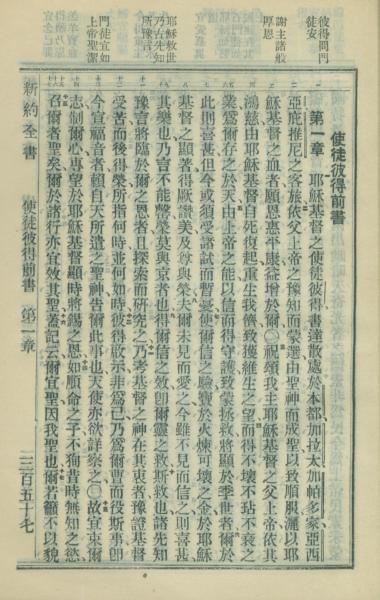 彼得問門
徒安
謝主諸般
厚恩
耶穌救世
乃古先知
所豫言
門徒宜如
上帝聖潔
使徒彼得前書
第一章　耶穌基督之使徒彼得書達散處於本都加拉太加帕多家亞西
亞庇推尼之客旅依父上帝之豫知而蒙選由聖神而成聖以致順服灑以耶
穌基督之血者願恩惠平康益增於爾〇祝頌我主耶穌基督之父上帝依其
鴻慈由耶穌基督自死復起重生我儕致獲維生之望而得不壞不玷不衰之
業爲爾存之於天由上帝之能以信而得守護致蒙拯救將顯於季世者爾於
此則喜甚但今或須受諸試而暫憂使爾信之驗寶於火煉可壞之金於耶穌
基督之顯著得致讚美及尊與榮夫爾未見而愛之今雖不見而信之則喜甚
其樂也乃言不能罄榮莫與京者也得爾信之效卽爾靈之救斯救也諸先知
豫言將臨於爾之恩者且探索而研究之乃考基督之神在其衷者豫證基督
受苦而後得榮所指何時並何如時彼得啟示非爲己乃爲爾曹而役斯事卽
今宣福音者賴自天所遣之聖神告爾此事也天使亦欲詳察之〇故宜束爾
志制爾心專望於耶穌基督顯時將錫之恩如順命之子不狥昔時無知之慾
召爾者聖矣爾於諸行亦宜效其聖蓋記云爾宜聖因我聖也爾若籲不以貌
新約全書　使徒彼得前書　第一章　三百五十七